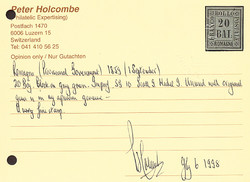 Peter Holcombe
(Philatelic Expertising)
Postfach 1470
6006 Luzern 15
Switzerland
Tel: 041 410 56 25
Opinion only / Nur Gutachten
BOLLO
20
BAJ
ROMAGNE
Romagna (Provisional Government) 1859 (1 September)
20 Baj. Black on grey green. Imperf. SG 10 Scott 8 Michel 8 Unused with original
gum is in my opinion genuine -
A very fine stamp.
July 6 1998